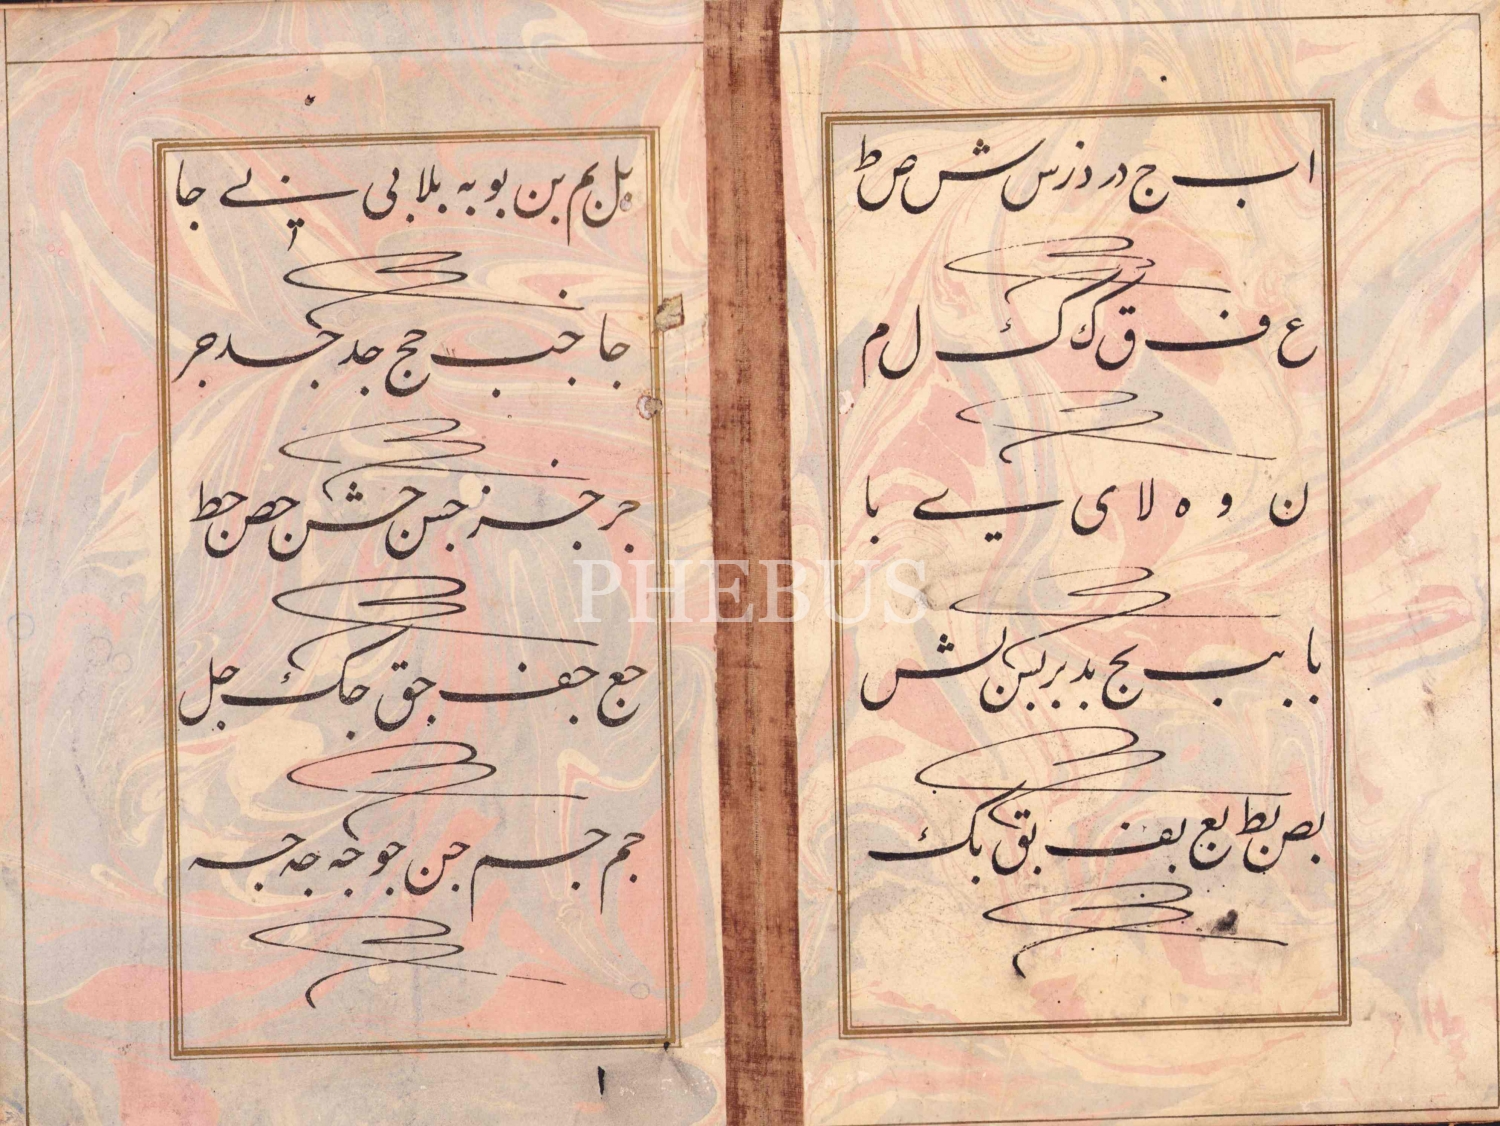 ا ب ج در د ز س ش ص ط
ع ف ق ك گ ك ل م
ن و ه لا ى ے با
با بب بج بد بر بس بش
بص بط بع بف بق بك
بل بم بن بو به بلا بى جا
جا جب جج جد جد جر
جر جز جس جش جص جط
جع جف جق جك جل
جم جم جن جو جه جه جه
PHEBUS
١